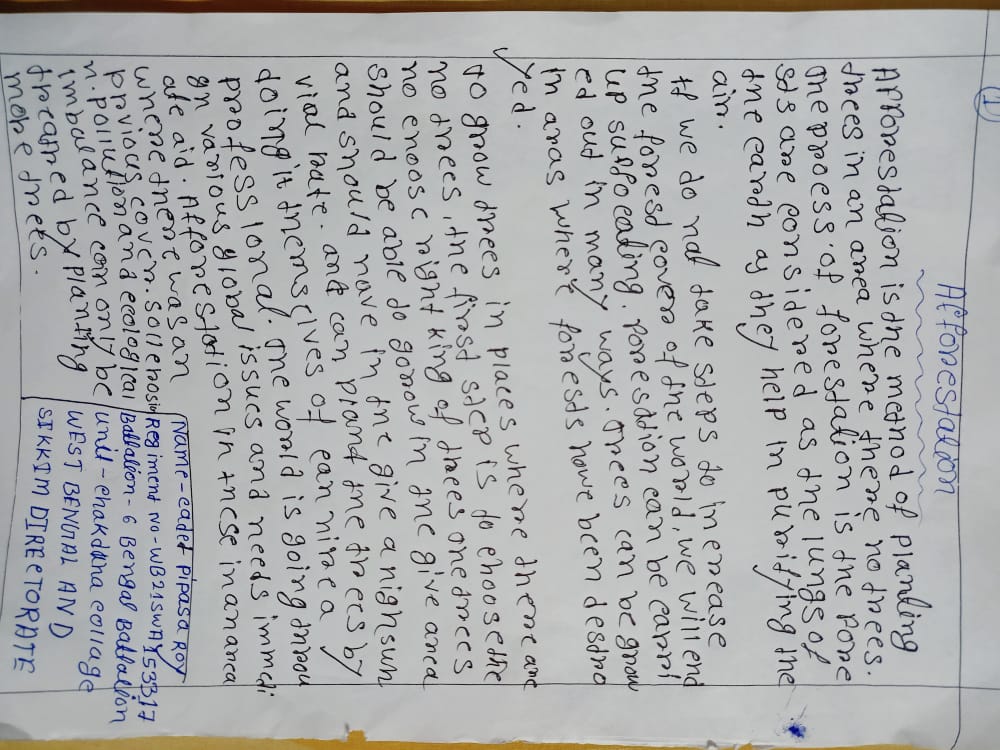 1
Afforestation
Afforestation is the method of planting
trees in an area where there no trees.
The proess. of forestation is the pore
sts are considered as the lungs of
the earth as they help in purifying the
air.
If we do not take steps to increase
the forest covere of the world, we will end
up suffocating. porestion can be carri
ed out in many ways. Trees can be grow
in aras where forests have been destro
yed.
To grow trees in places where there are
no trees, the first step is to choose the
no enose right king of trees one trees
should be able to gorow in the give area
and should have in the give a nigh sun
vial rate. and can plant the trees by
doing it themsclves of can nire a
professional. The world is going throu
gn various global issues and needs immedi
ate aid. Afforestation in these in ananea
where there was an
previous cover. soll erosio
n. pollution and ecological
imbulance con only be
threatned by planting
more trees.
Name-cadet Pipasa ROY
Regiment No-WB21SWA153317
Battalion-6 Bengal Battallion
unit-chakdaha collage
WEST BENGAL AND
SIKKIM DIREETORATE